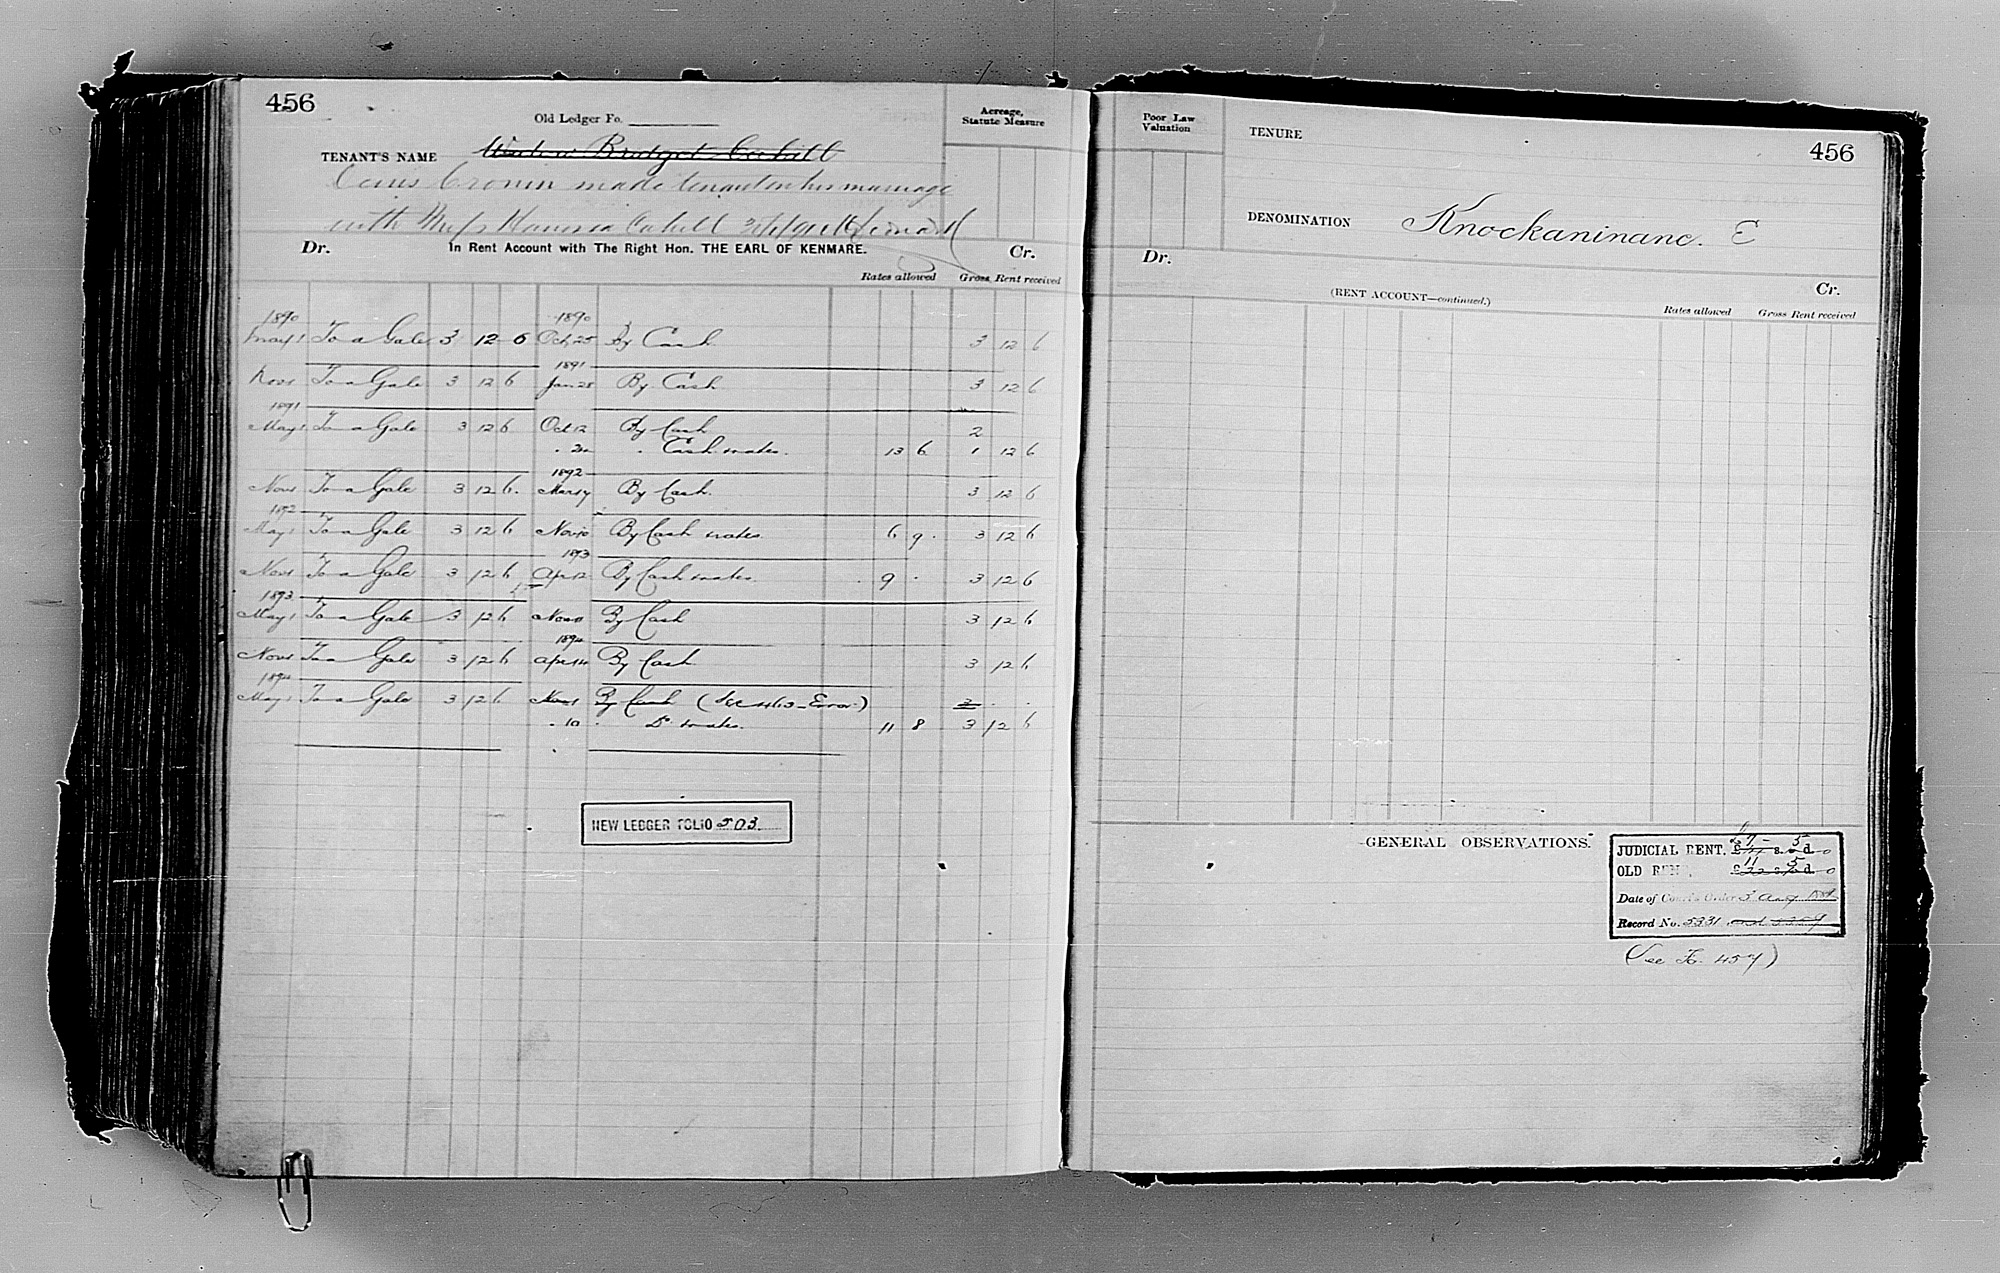 456
Old Ledger Fo.
Acreage,
Statute Measure
TENANT'S NAME Widow Bridget Cahill
Cronin made tenant on his marriage
with Miss Hanna Cahill
Dr. In Rent Account with The Right Hon. THE EARL OF KENMARE. Cr.
Rates allowed Gross Rent received
1890 1890
May 1 To a Gale 3 12 6 Oct 25 By Cash 3 12 6
1891
Nov 1 To a Gale 3 12 6 Jan 28 By Cash 3 12 6
1891
May 1 To a Gale 3 12 6 Oct 12 By Cash 2
" Cash & rates. 13 6 1 12 6
1892
Nov 1 To a Gale 3 12 6. Mar 17 By Cash. 3 12 6
1892
May 1 To a Gale 3 12 6 Nov 10 By Cash & rates. 6 9 3 12 6
1893
Nov 1 To a Gale 3 12 6 Apr 12 By Cash & rates. 9 3 12 6
1893
May 1 To a Gale 3 12 6 Nov By Cash 3 12 6
1894
Nov 1 To a Gale 3 12 6 Apr 14 By Cash 3 12 6
1894
May 1 To a Gale 3 12 6 Nov 1 By Cash (See 463 - Error) 3
" 10 Do & rates. 11 8 3 12 6
NEW LEDGER FOLIO 503
Poor Law
Valuation
TENURE
456
DENOMINATION Knockaninane. E
Dr. Cr.
(RENT ACCOUNT—continued.)
Rates allowed Gross Rent received
GENERAL OBSERVATIONS.
JUDICIAL RENT, £7 - 5 s. d. 0
OLD REN £ 11 5 s. d. 0
Date of Court's Order 3 Aug
Record No. 5331 and
(See Fo. 457)